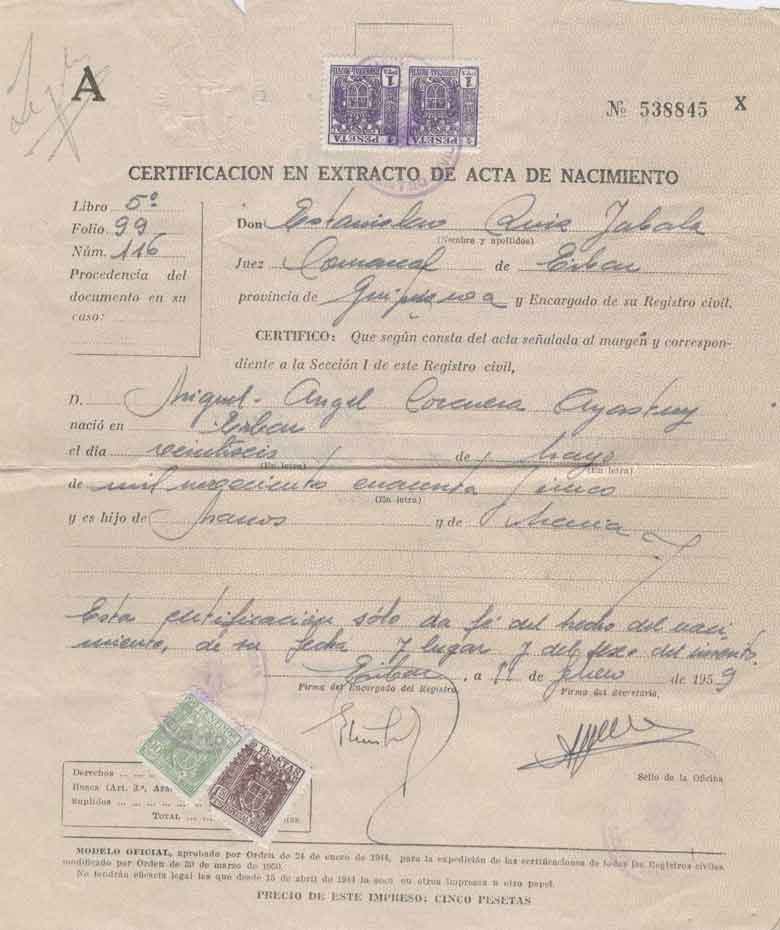 A
1 PTA 1 PTA
PESETA PESETA
Nº 538845 X
CERTIFICACION EN EXTRACTO DE ACTA DE NACIMIENTO
Libro 5º
Folio 99
Núm. 116
Procedencia del
documento en su
caso:
Don Estanislao Ruiz
(Nombre y apellidos)
Juez Comarcal de Eibar
provincia de Guipúzcoa y Encargado de su Registro civil.
CERTIFICO: Que según consta del acta señalada al margen y correspon-
diente a la Sección I de este Registro civil,
D. Miguel-Angel Corcuera
nació en Eibar
el día veintiseis de Mayo
(En letra) (En letra)
de mil novecientos cuarenta y cinco
(En letra)
y es hijo de Marcos y de Maria
Esta certificación sólo da fé del hecho del naci
miento, de su fecha y lugar y del sexo del inscrito.
Eibar, a 11 de Febrero de 1959
Firma del Encargado del Registro, Firma del Secretario,
Sello de la Oficina
PESETAS
Derechos
Busca (Art. 3.º, Ara
Suplidos
TOTAL
MODELO OFICIAL, aprobado por Orden de 24 de enero de 1944, para la expedición de las certificaciones de todos los Registros civiles
modificado por Orden de 20 de marzo de 1950.
No tendrán eficacia legal las que desde 15 de abril de 1944 lo sean en otros impresos u otro papel.
PRECIO DE ESTE IMPRESO: CINCO PESETAS